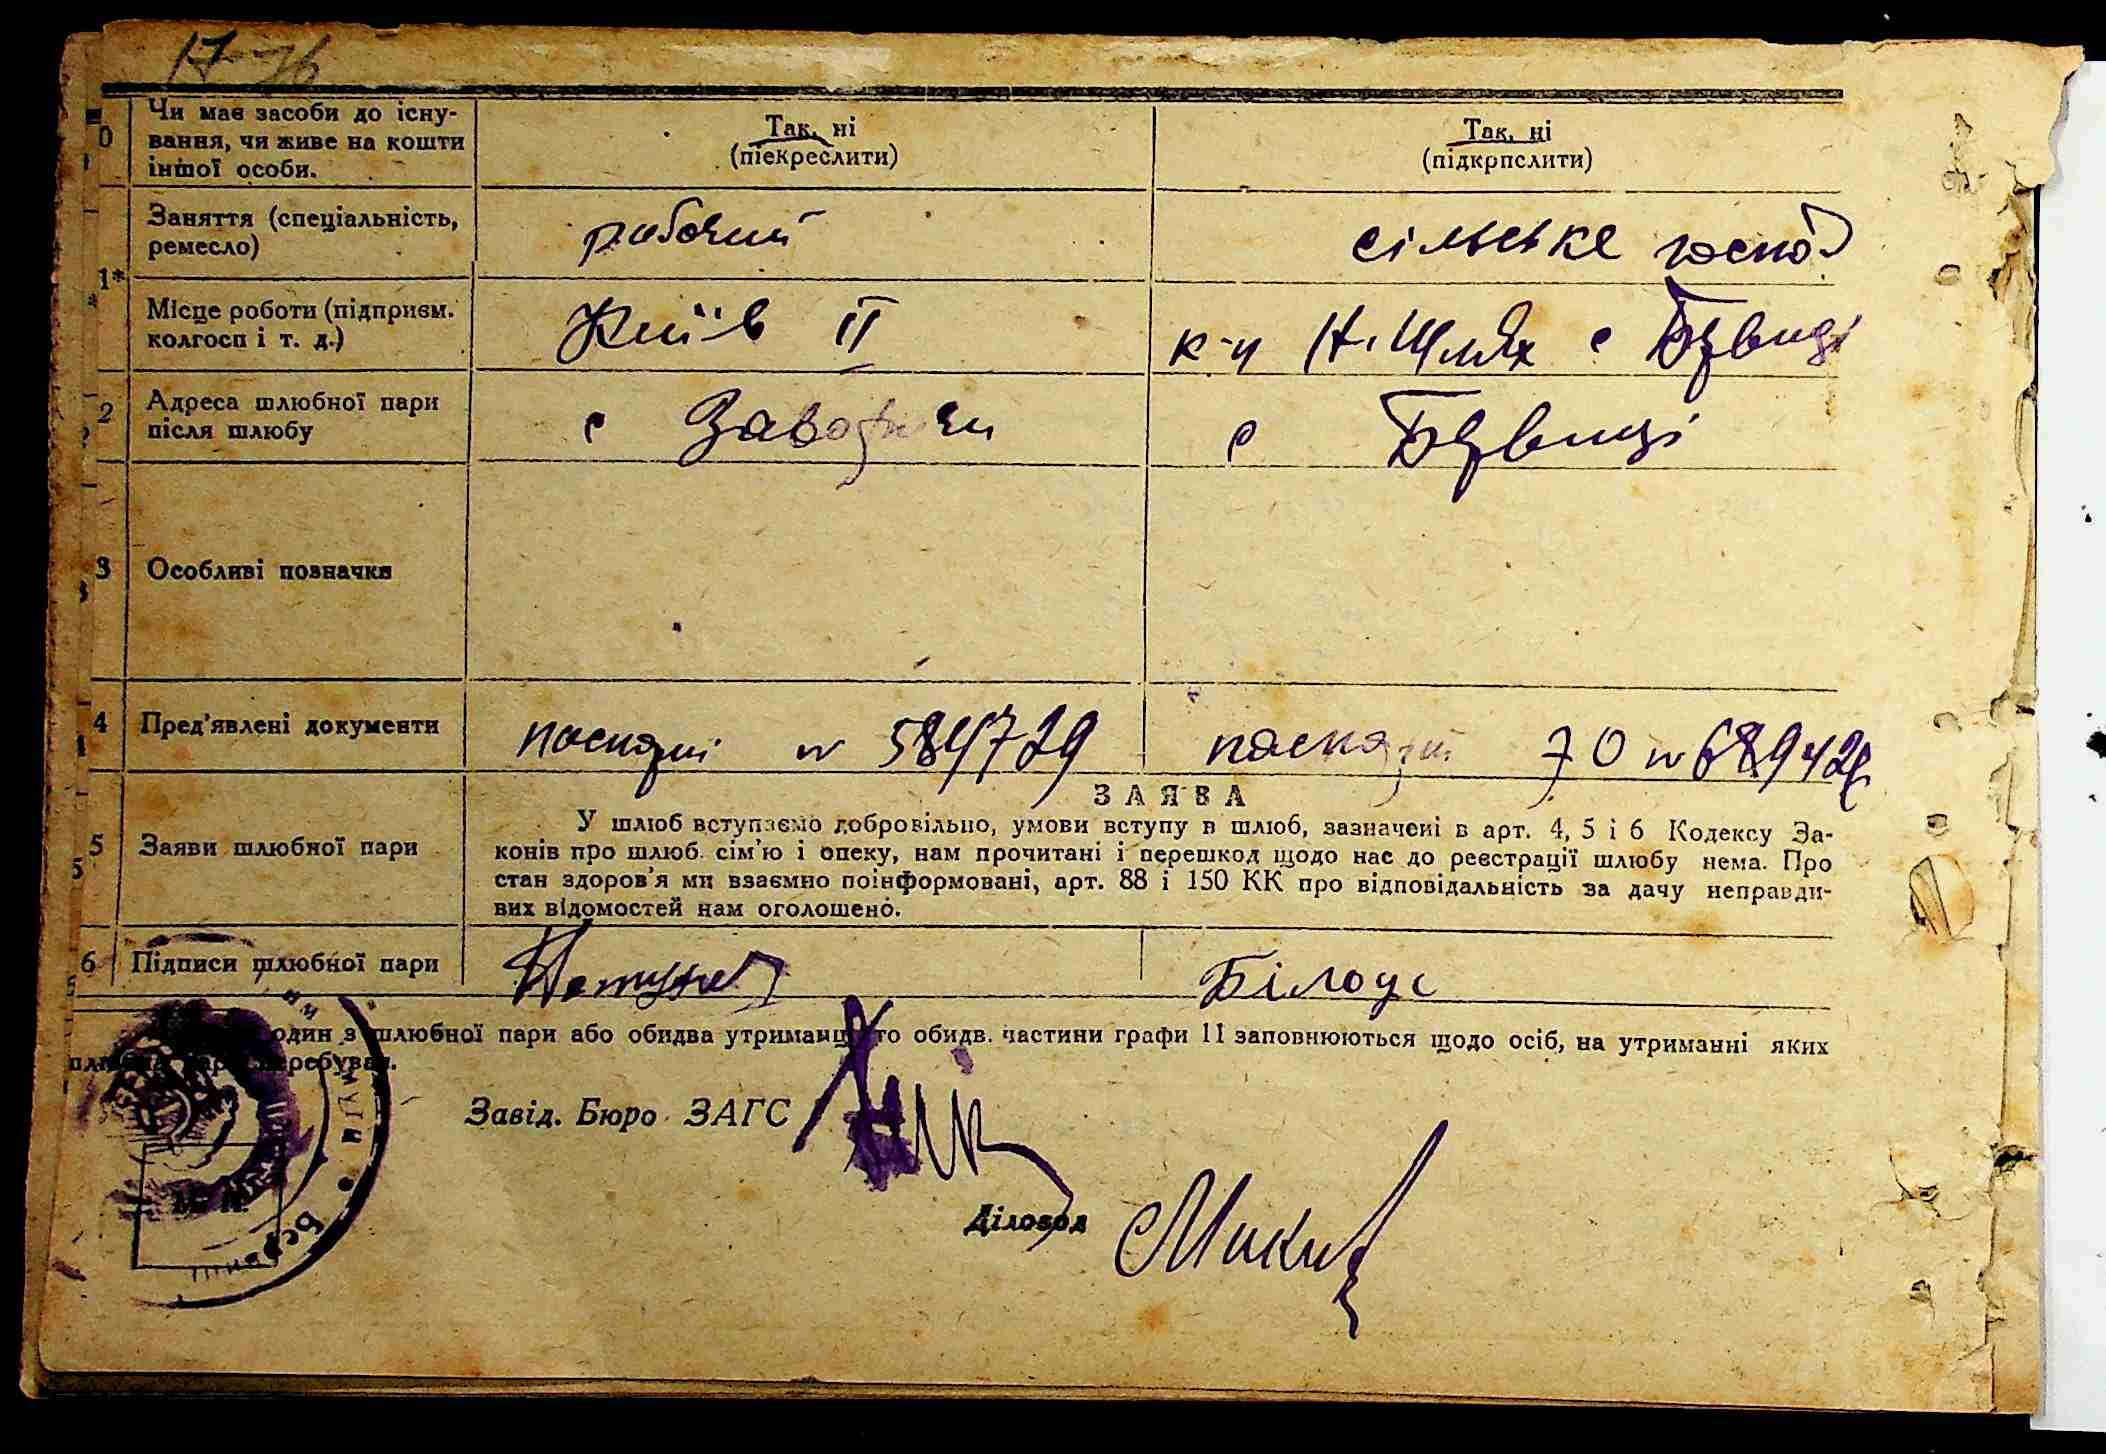 17-76
0 Чи має засоби до існу-
вання, чи живе на кошти
іншої особи.
Так, ні
(піекреслити)
Так, ні
(підкрпслити)
Заняття (спеціальність,
ремесло)
робочий
сільське госпо
1*
Місце роботи (підприєм.
колгосп і т. д.)
Київ ІІ
к-п Н. Шлях с Бзвиці
2 Адреса шлюбної пари
після шлюбу
с
с Бзвиці
3 Особливі позначки
4 Пред'явлені документи
паспорт № 584729
паспорт № 689424
ЗАЯВА
5 Заяви шлюбної пари
У шлюб вступаємо добровільно, умови вступу в шлюб, зазначені в арт. 4, 5 і 6 Кодексу За-
конів про шлюб. сім'ю і опеку, нам прочитані і перешкод щодо нас до реєстрації шлюбу нема. Про
стан здоров'я ми взаємно поінформовані, арт. 88 і 150 КК про відповідальність за дачу неправди-
вих відомостей нам оголошено.
6 Підписи шлюбної пари
Білоус
один з шлюбної пари або обидва утриманці то обидв. частини графи 11 заповнюються щодо осіб, на утриманні яких
Завід. Бюро ЗАГС
Діловод